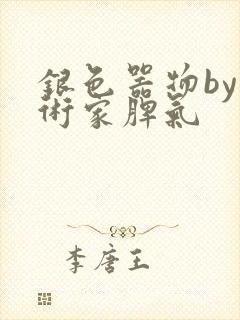 銀色器物by
術家脾氣
李唐王